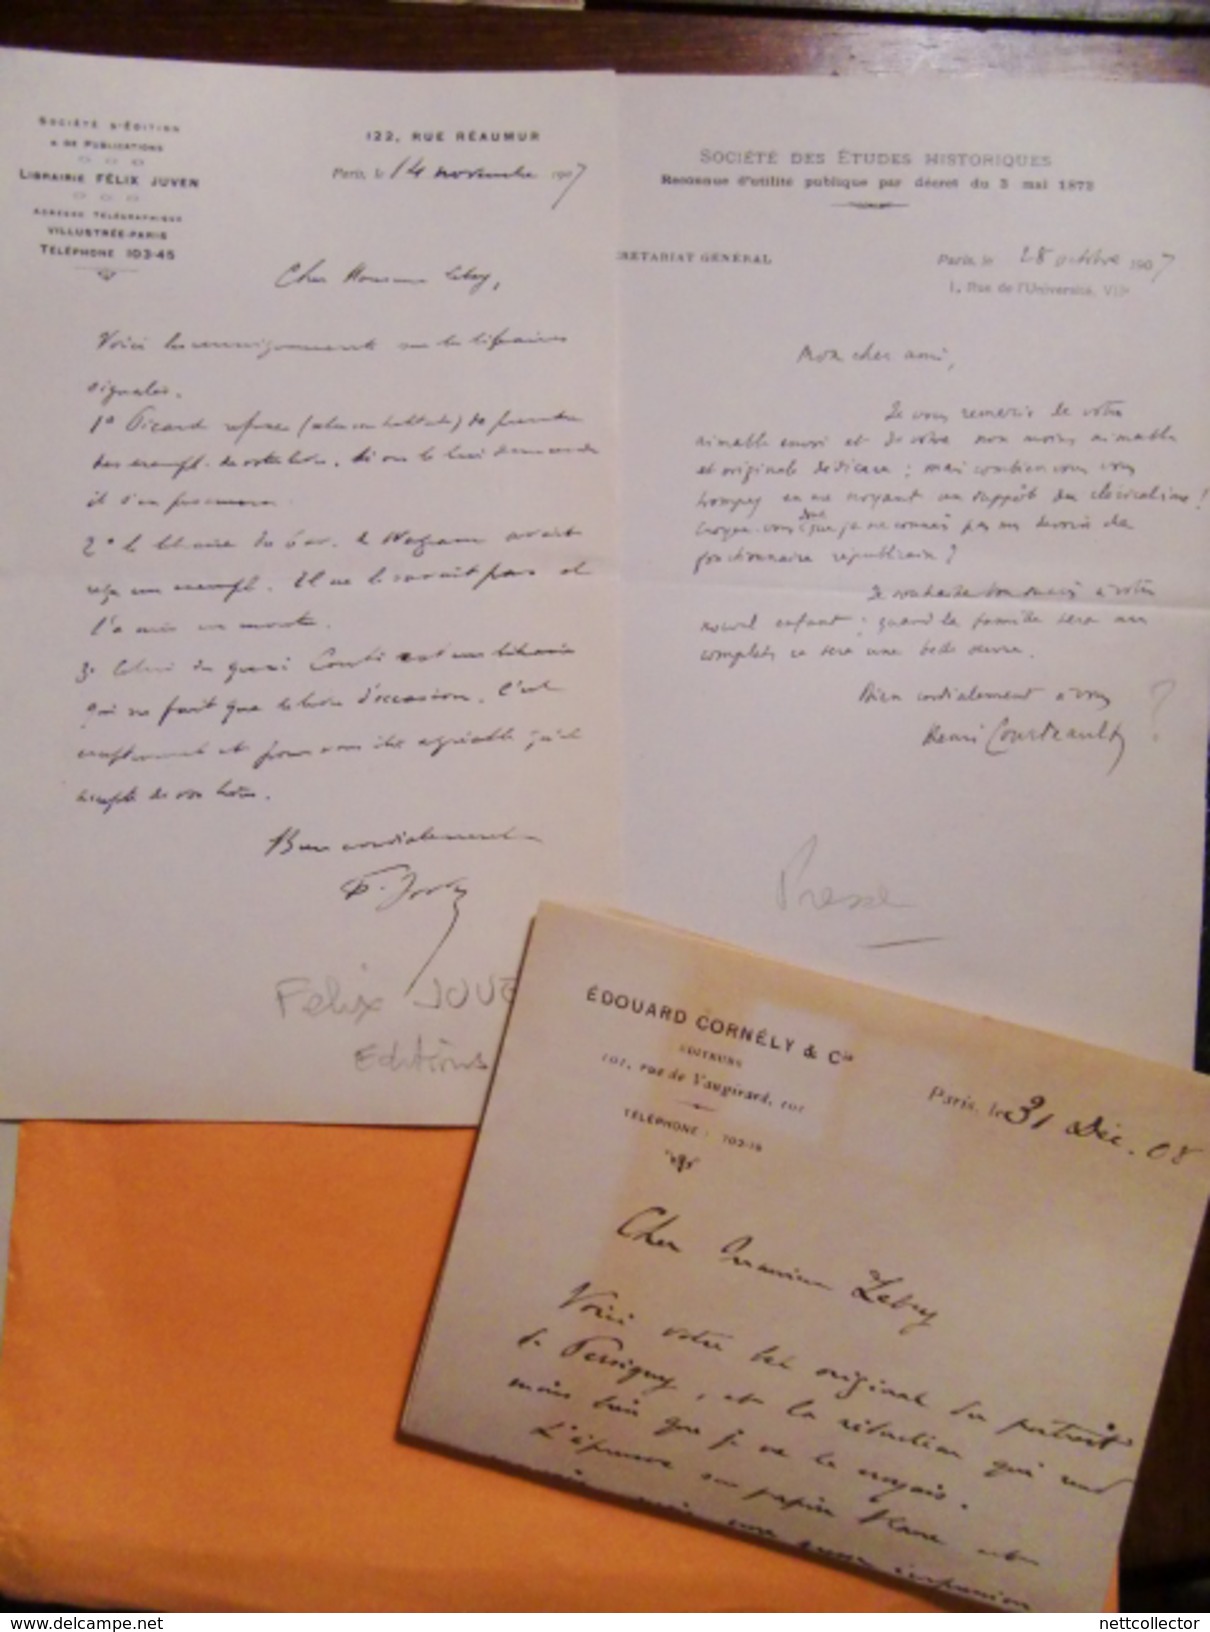 SOCIÉTÉ D'ÉDITION
& DE PUBLICATIONS
LIBRAIRIE FÉLIX JUVEN
ADRESSE TÉLÉGRAPHIQUE
VILLUSTRÉE-PARIS
TÉLÉPHONE 103-45
122, RUE RÉAUMUR
Paris, le 14 novembre 1907
Cher Monsieur Lebey,
Voici les renseignements sur les libraires
signalés.
1° Picard refuse de prendre
des exempl. de votre livre. Si on le lui demande
il s'en procurera.
2° le libraire du 6 av. de Wagram avait
reçu un exempl. Il ne le savait pas et
l'a mis en montre.
3° Celui du quai Conti est un libraire
qui ne fait que le livre d'occasion. C'est
et pour vous être agréable qu'il
de vos livres.
Bien cordialement
F. Juven
Felix JOUVE
Editions
SOCIÉTÉ DES ÉTUDES HISTORIQUES
Reconnue d'utilité publique par décret du 3 mai 1872
CRÉTARIAT GÉNÉRAL
Paris, le 28 octobre 1907
1, Rue de l'Université, VIIe
Mon cher ami,
Je vous remercie de votre
aimable envoi et de votre non moins aimable
et originale dédicace ; mais combien vous vous
trompez en me croyant un suppôt du cléricalisme !
Croyez-vous donc que je ne connais pas mes devoirs de
fonctionnaire républicain ?
Je souhaite bon succès à votre
nouvel enfant ; quand la famille sera au
complet, ce sera une belle œuvre.
Bien cordialement à vous
Henri Courteault ?
Presse
ÉDOUARD CORNÉLY & Cie
ÉDITEURS
101, rue de Vaugirard, 101
TÉLÉPHONE : 703-19
Paris, le 31 Déc. 08
Cher Monsieur Lebey
Voici votre bel original du portrait
de Persigny, et la réduction qui rend
mieux que je ne le croyais.
L'épreuve sur papier blanc
une impression
delcampe.net
nettcollector